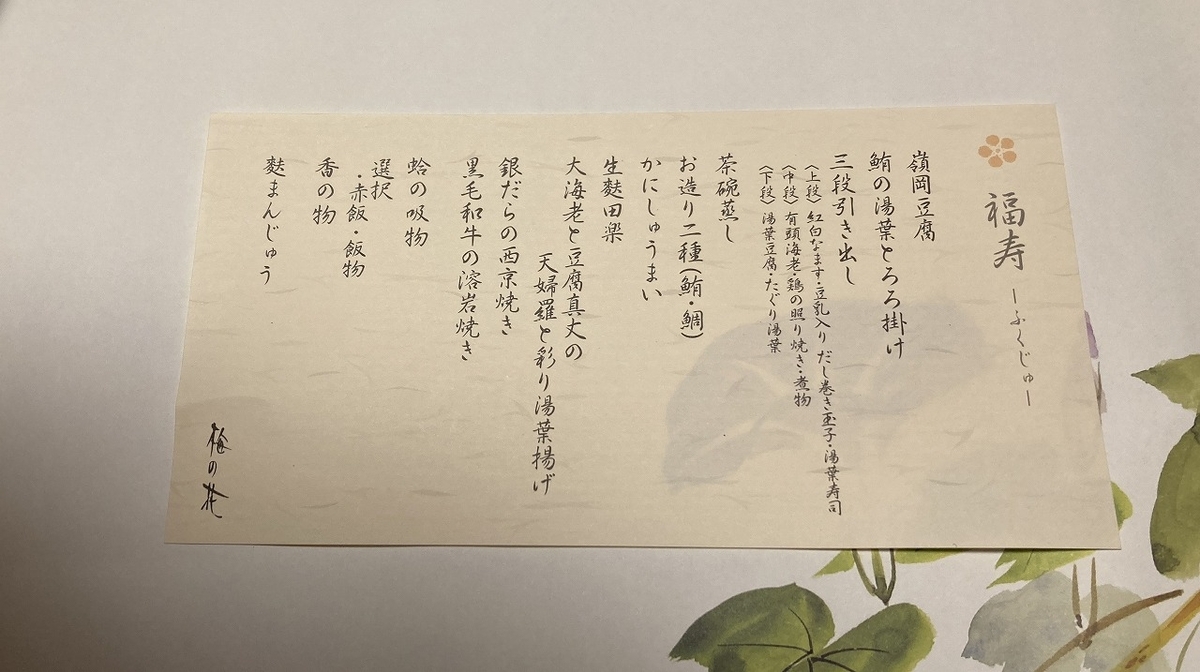 福寿 ーふくじゅー
嶺岡豆腐
鮪の湯葉とろろ掛け
三段引き出し
〈上段〉紅白なます・豆乳入り だし巻き玉子・湯葉寿司
〈中段〉有頭海老・鶏の照り焼き・煮物
〈下段〉湯葉豆腐・たぐり湯葉
茶碗蒸し
お造り二種(鮪・鯛)
かにしゅうまい
生麩田楽
大海老と豆腐真丈の
天婦羅と彩り湯葉揚げ
銀だらの西京焼き
黒毛和牛の溶岩焼き
蛤の吸物
選択
・赤飯・飯物
香の物
麩まんじゅう
梅の花